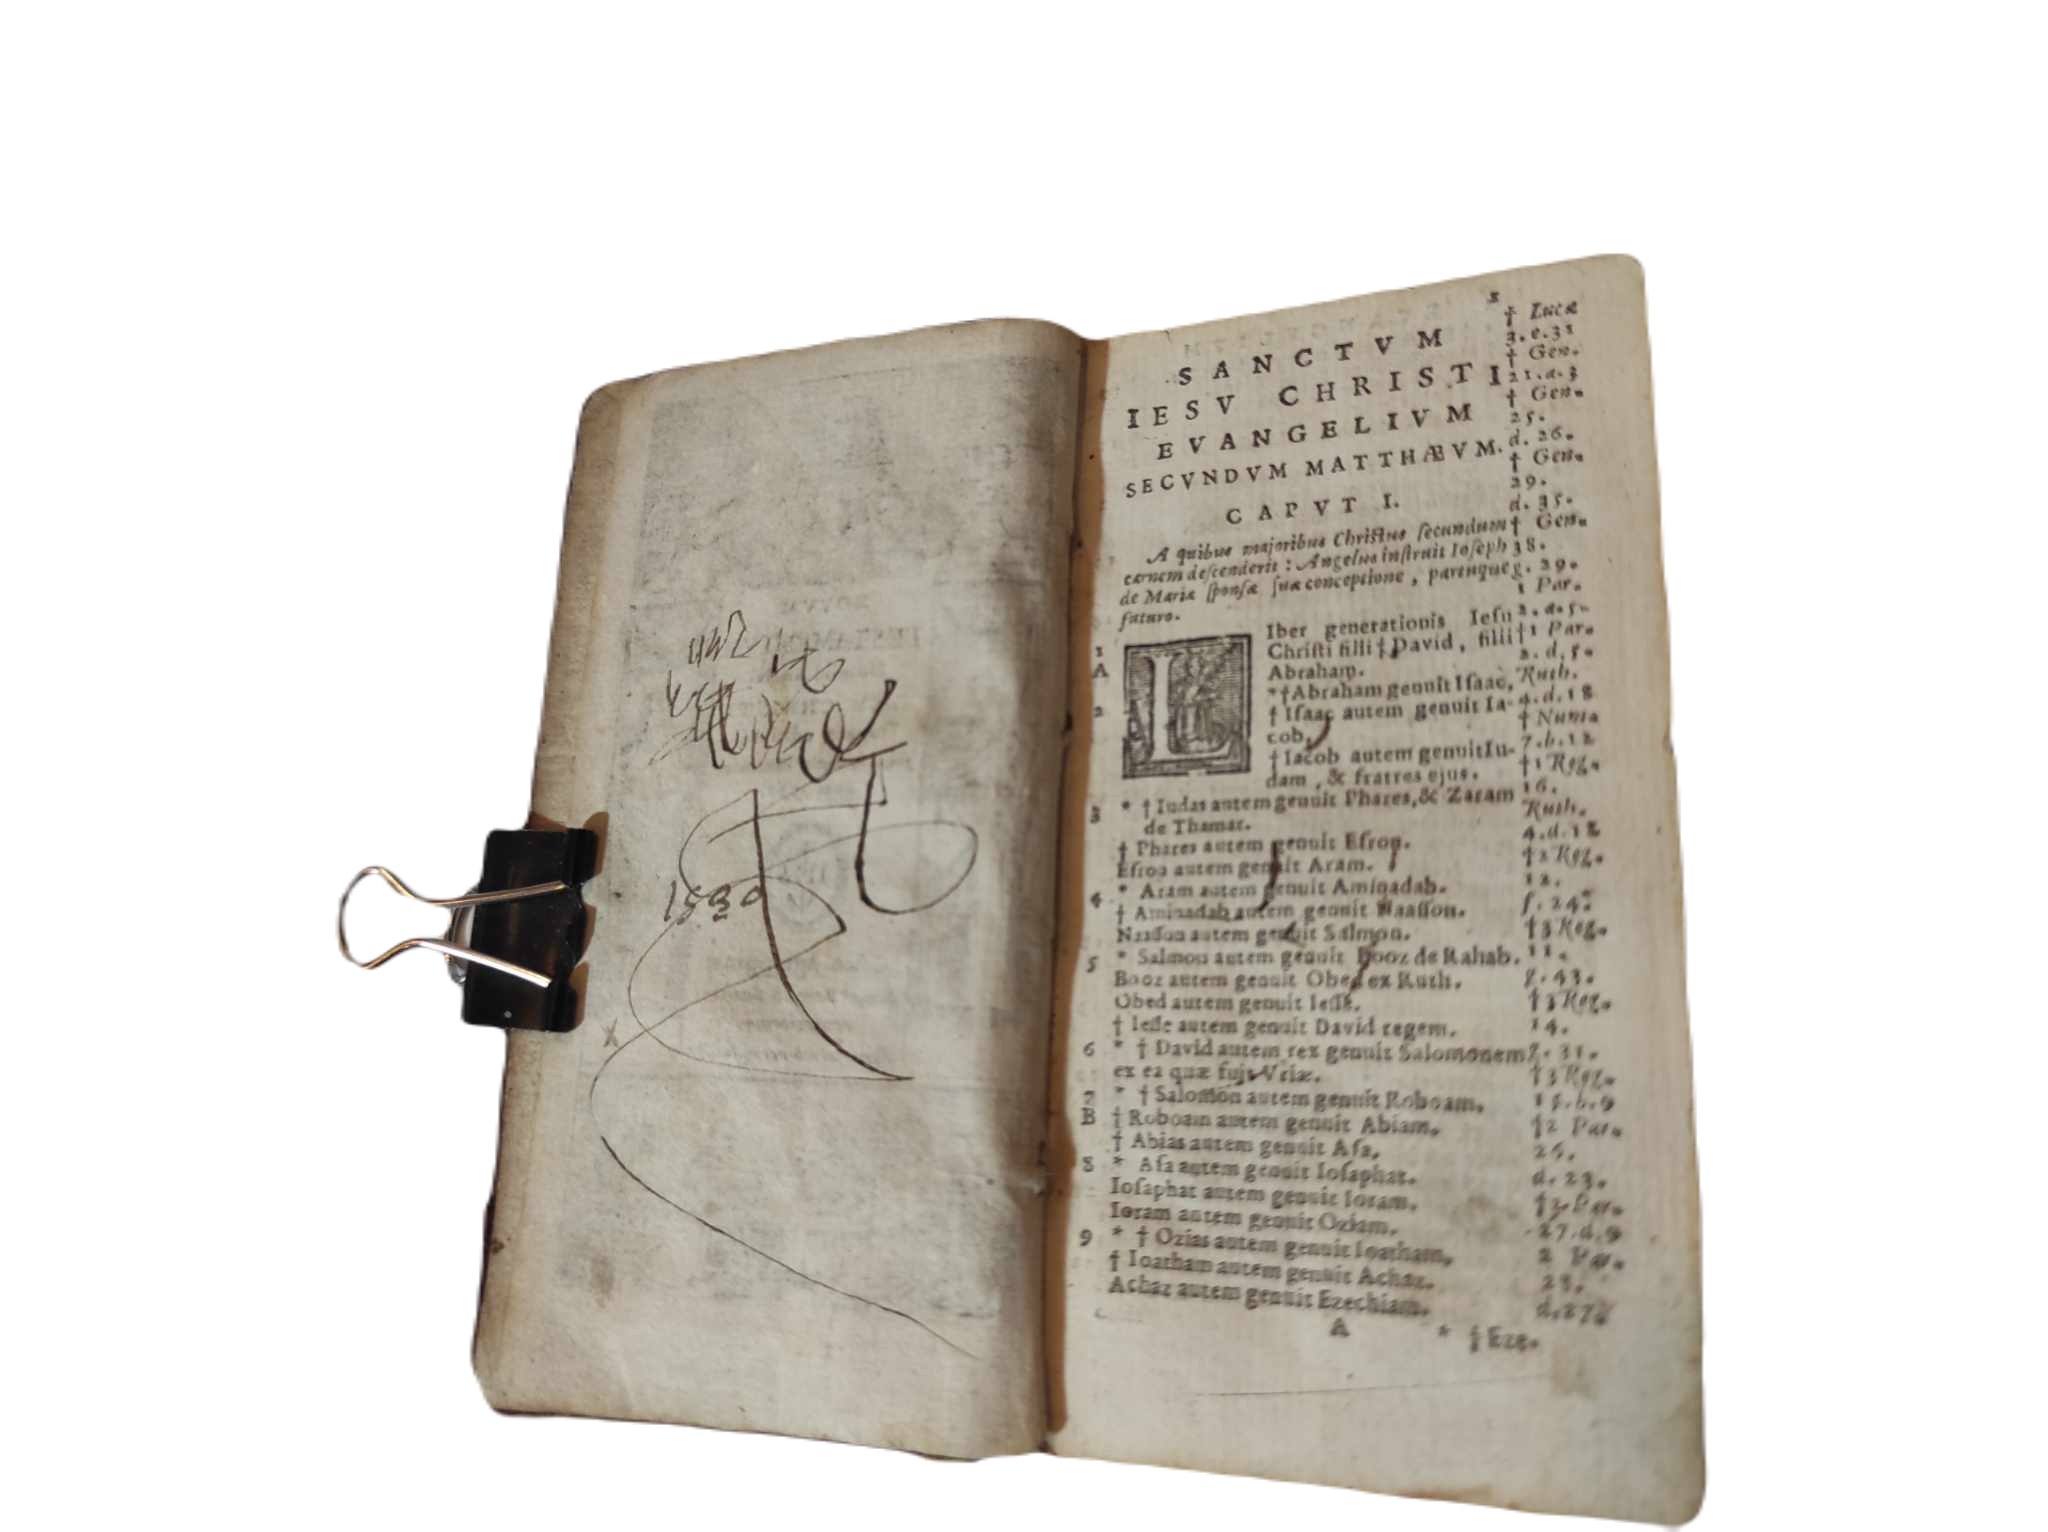 1
SANCTVM
IESV CHRISTI
EVANGELIVM
SECVNDVM MATTHÆVM.
CAPVT I.
A quibus majoribus Chriſtus ſecundum
carnem deſcenderit : Angelus inſtruit Ioſeph
de Maria ſponſæ ſuæ conceptione , partuque
futuro.
1 LIber generationis Ieſu
Chriſti filii † David , filii
A Abraham.
2 *†Abraham genuit Iſaac,
† Iſaac autem genuit Ia-
cob.
† Iacob autem genuit Iu-
dam , & fratres ejus.
3 * † Iudas autem genuit Phares, & Zaram
de Thamar.
† Phares autem genuit Eſron.
Eſron autem genuit Aram.
4 * Aram autem genuit Aminadab.
† Aminadab autem genuit Naaſſon.
Naaſſon autem genuit Salmon.
5 * Salmon autem genuit Booz de Rahab.
Booz autem genuit Obed ex Ruth.
Obed autem genuit Ieſſe.
† Ieſſe autem genuit David regem.
6 * † David autem rex genuit Salomonem
ex ea quæ fuit Vriæ.
7 * † Salomon autem genuit Roboam.
B † Roboam autem genuit Abiam.
† Abias autem genuit Aſa.
8 * Aſa autem genuit Ioſaphat.
Ioſaphat autem genuit Ioram.
Ioram autem genuit Oziam.
9 * † Ozias autem genuit Ioatham.
† Ioatham autem genuit Achaz.
Achaz autem genuit Ezechiam.
A * † Eze.
† Lucæ
3. e. 31
† Gen.
21. a. 3
† Gen.
25.
d. 26.
† Gen.
29.
d. 35.
† Gen.
38.
g. 29.
1 Par.
2. a. 5.
†1 Par.
2. d. 5.
Ruth.
4. d. 18
† Num.
7. b. 12
†1 Reg.
16.
Ruth.
4. d. 18
†2 Reg.
12.
f. 24.
†3 Reg.
11.
g. 43.
†3 Reg.
14.
g. 31.
†3 Reg.
15. b. 9
†2 Par.
26.
d. 23.
†2 Par.
27. d. 9
2 Par.
28.
d. 27.